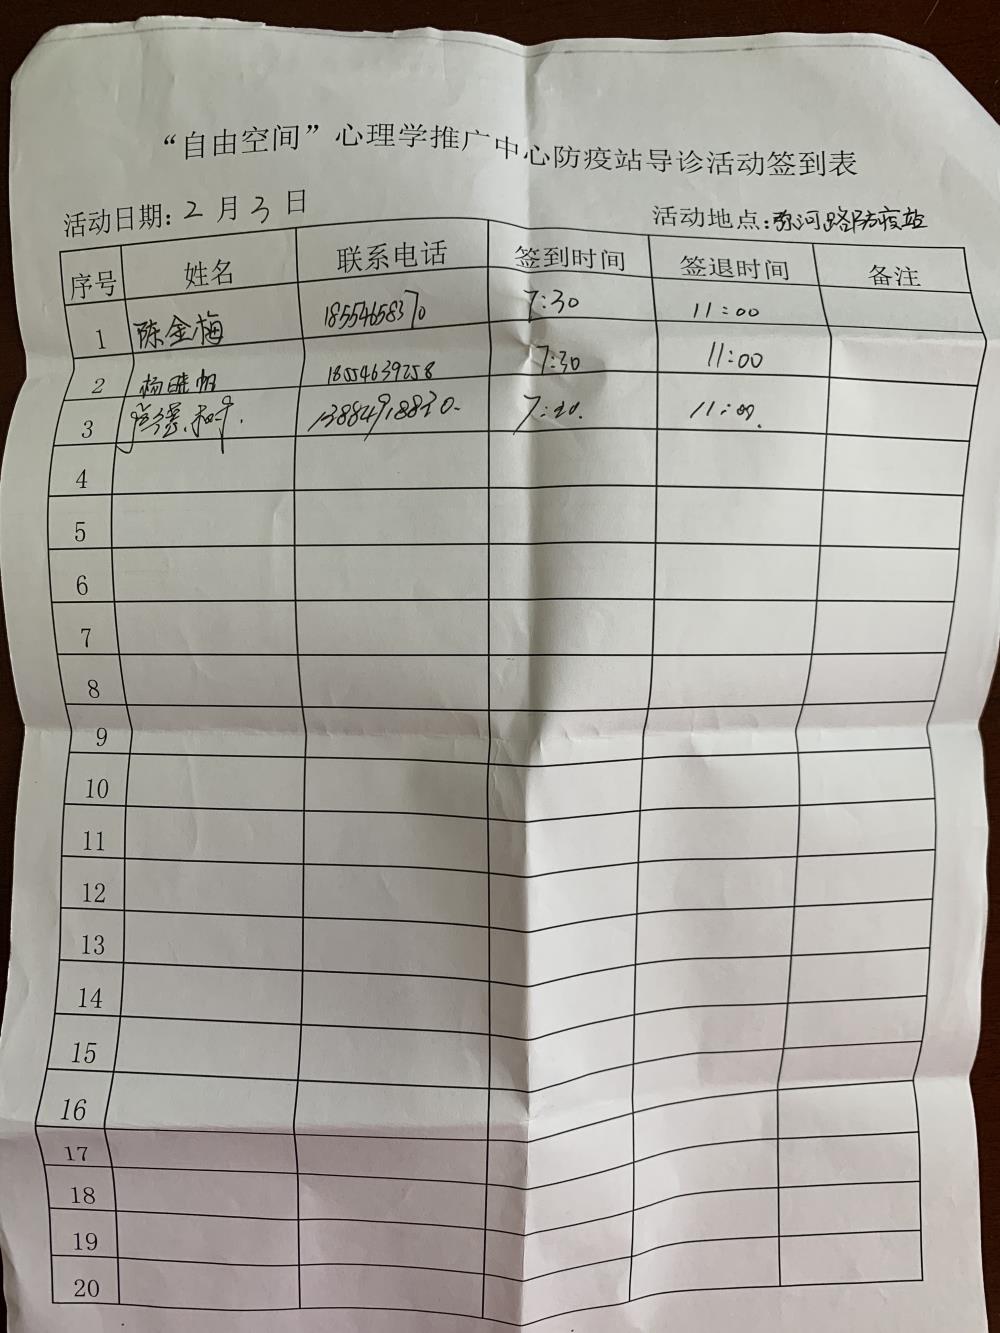 “自由空间”心理学推广中心防疫站导诊活动签到表
活动日期：2月3日 活动地点：弥河路防疫站
序号 姓名 联系电话 签到时间 签退时间 备注
1 陈金梅 18554658370 7:30 11:00
2 杨晓帆 18554639258 7:30 11:00
3 13884918830. 7:20. 11:00.
4
5
6
7
8
9
10
11
12
13
14
15
16
17
18
19
20